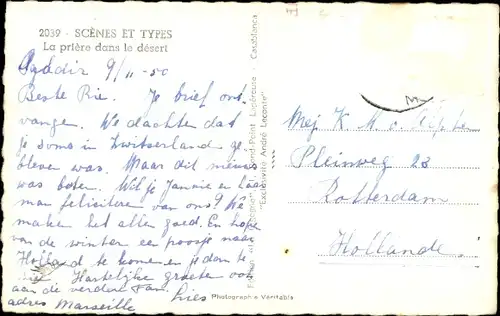 2039 - SCÈNES ET TYPES
La prière dans le désert
9/11-50
Beste Rie. Je brief ont-
vangen. We dachten dat
je soms in Zwitserland ge-
bleven was. Maar dit nieuws
was beter. Wil je Jannie en
man feliciteren van ons? We
maken het allen goed. En hopen
van de winter een poosje naar
Holland te komen en je dan te
Hartelijke groeten ook
aan de verdere fam. Lies
adres Marseille
Photographie Véritable
Rond-Point Lapéreuse Casablanca
Exclusivité André Leconte
Mej. K. M. v.
Pleinweg 23
Rotterdam
Hollande.